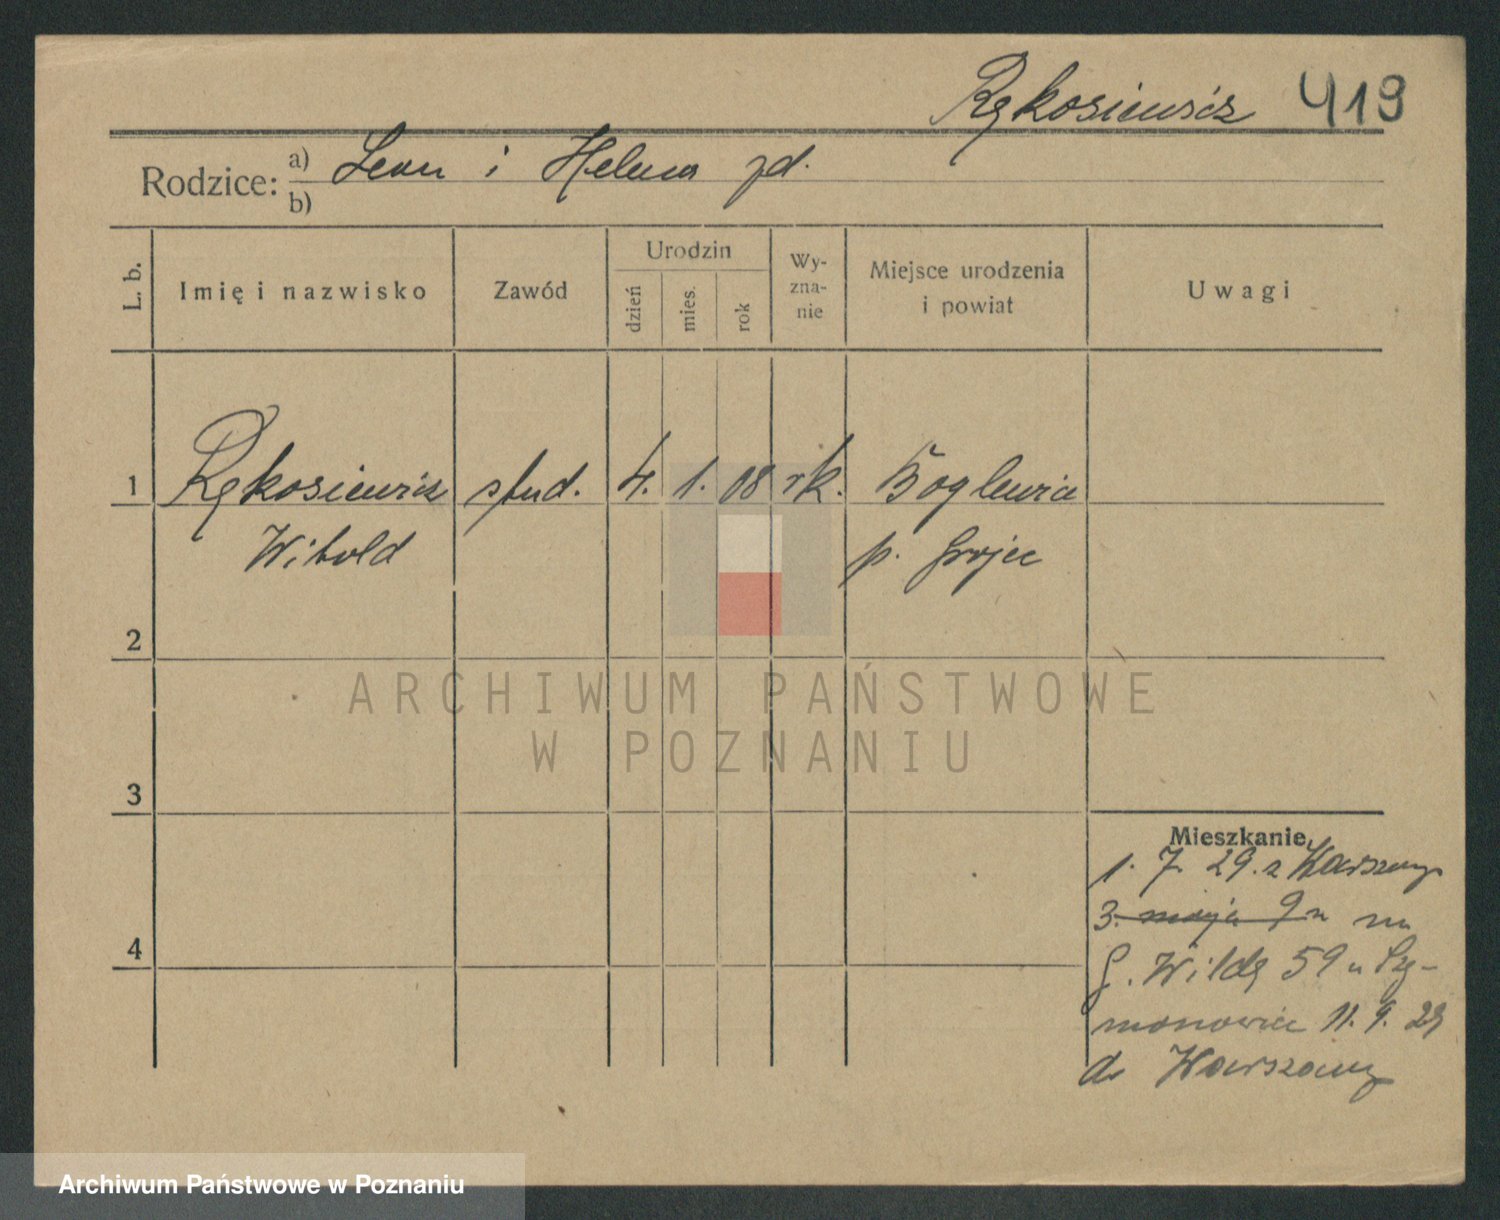 Rękosiewicz 419
Rodzice: a) Leon i Helena zd.
b)
L. b. Imię i nazwisko Zawód Urodzin dzień mies. rok Wyznanie Miejsce urodzenia i powiat Uwagi
1 Rękosiewicz stud. 4. 1. 08 rk. Boglewice
Witold p. Grojec
2
ARCHIWUM PAŃSTWOWE
W POZNANIU
3
Mieszkanie
1. 7. 29. z Warszawy
3. maja 9 na
G. Wildę 59 u Szy-
monowicz 11. 9. 29
do Warszawy
4
Archiwum Państwowe w Poznaniu